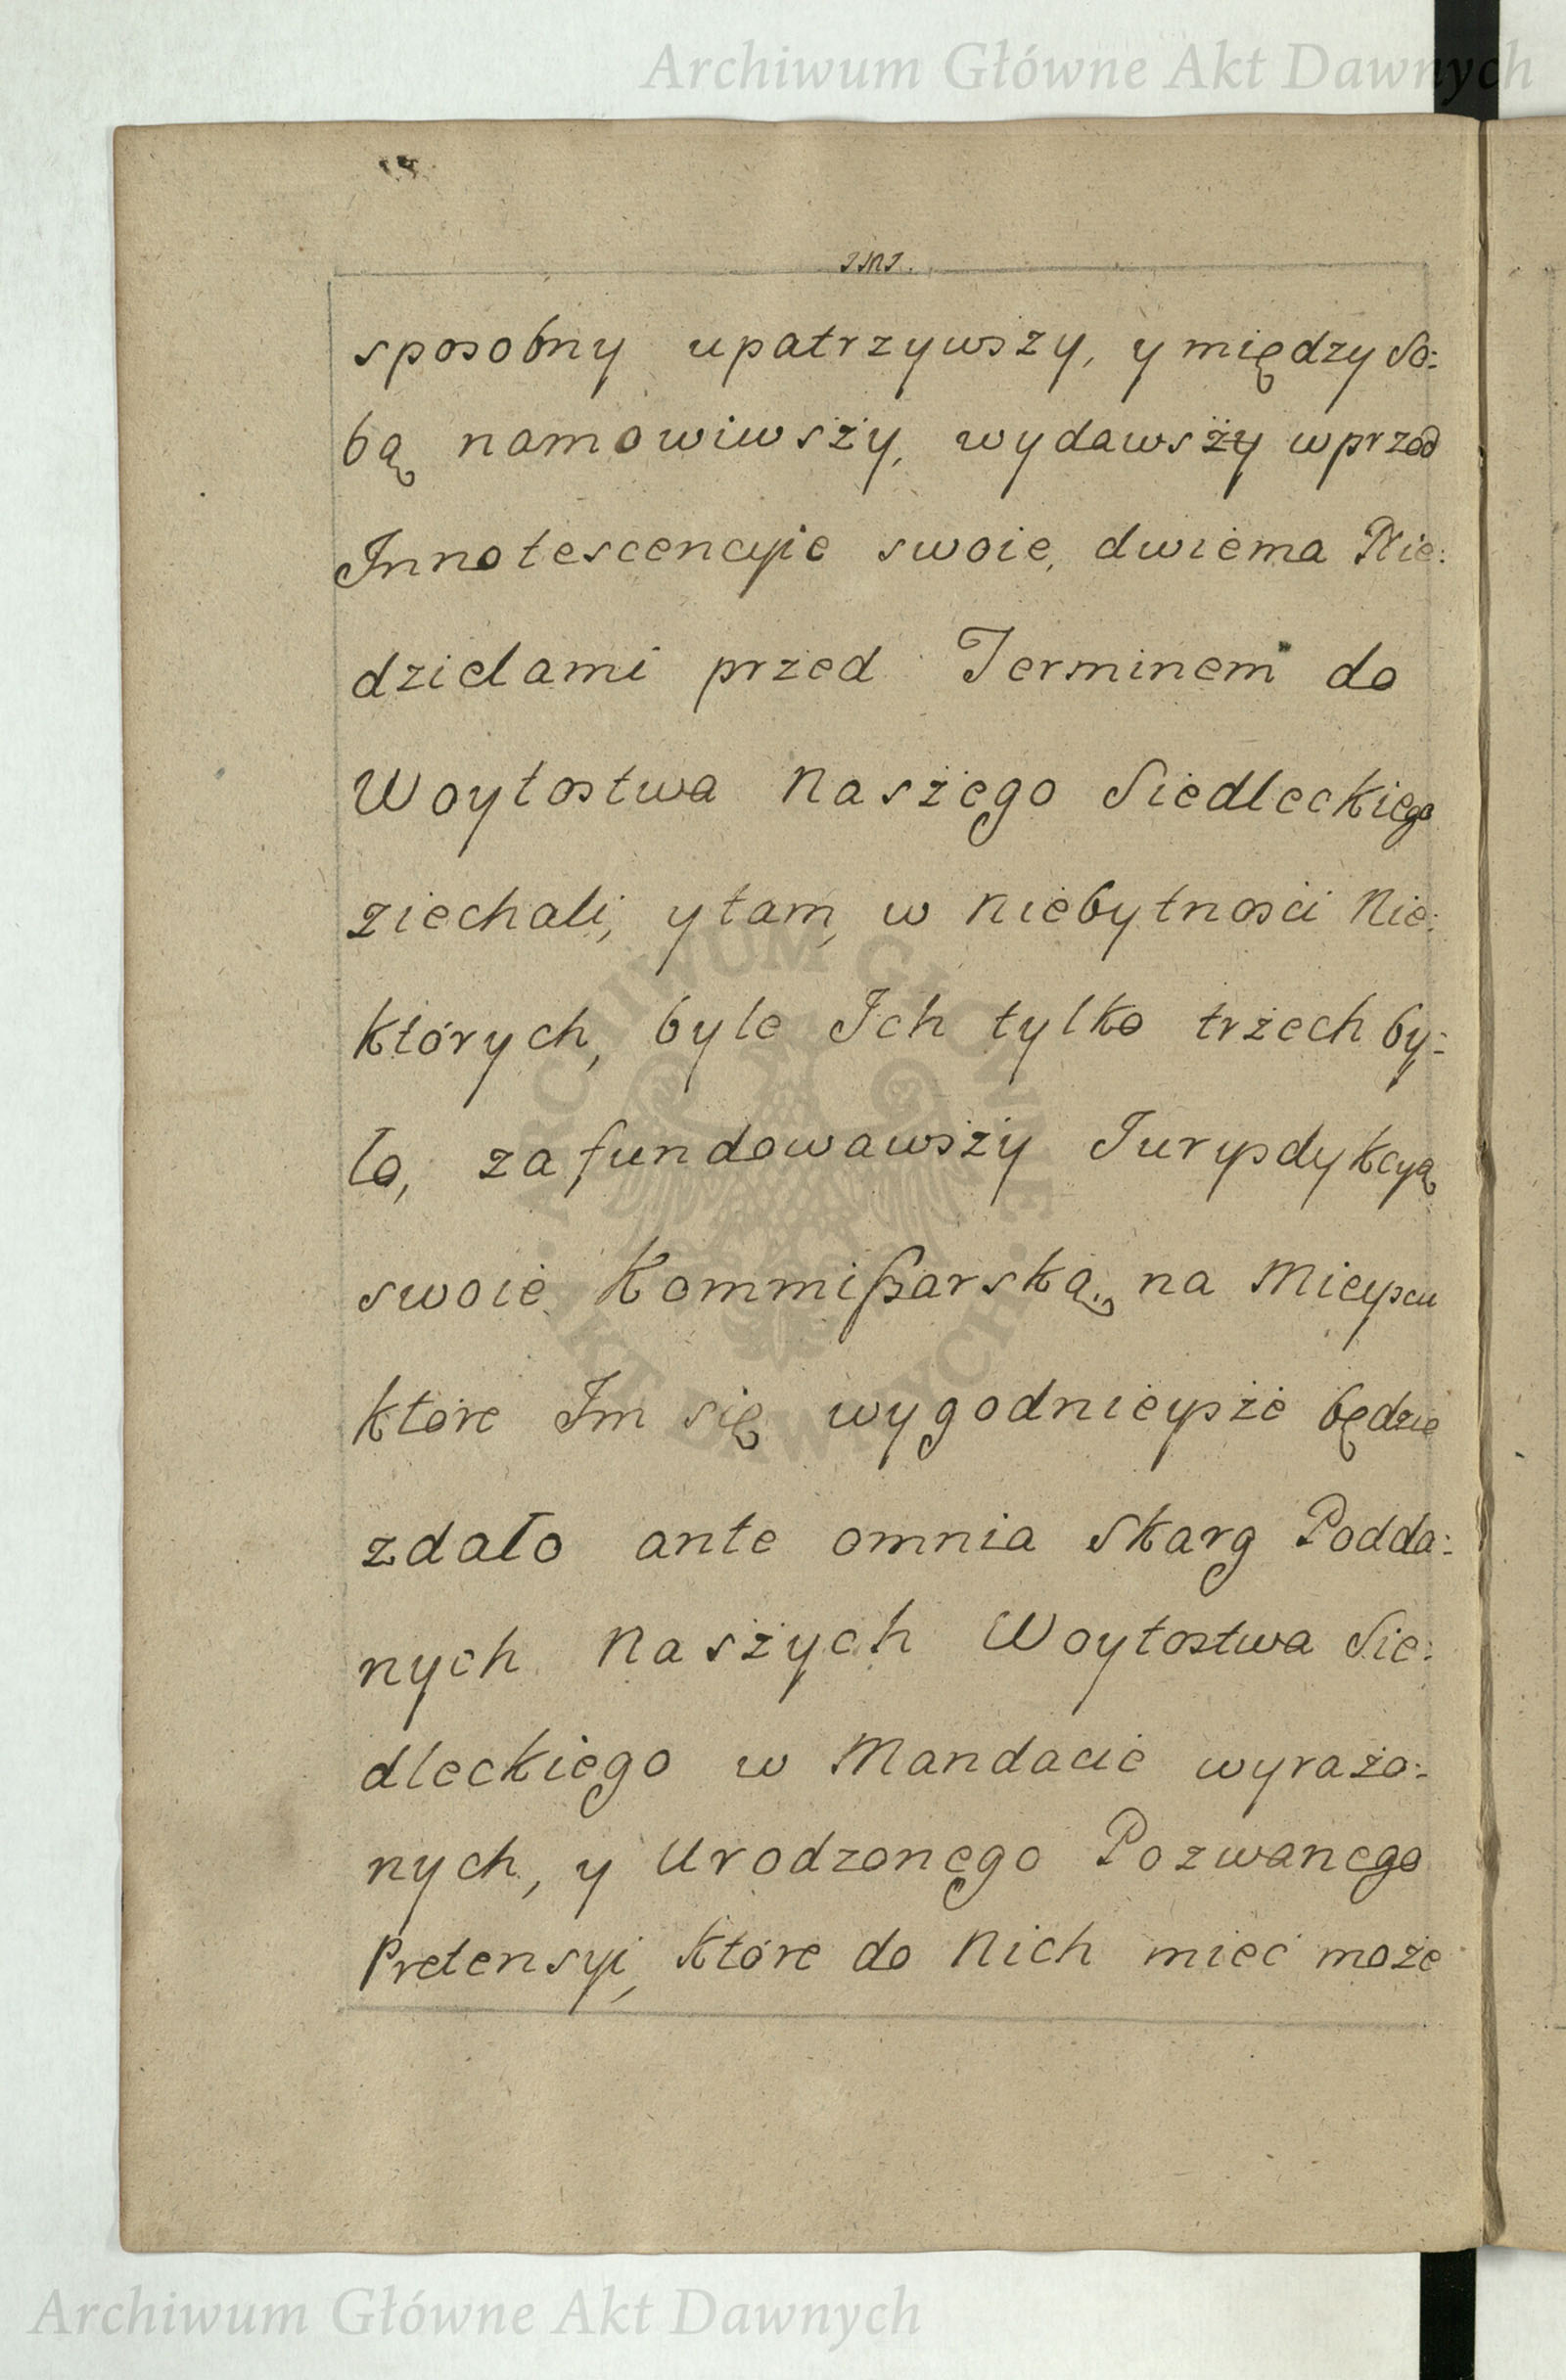 Archiwum Główne Akt Dawnych
sposobny upatrzywszy, y między So:
bą namowiwszży, wydawszży wprzod
Innotescencyie swoie, dwiema Nie:
dzielami przed Terminem do
Woytostwa Naszego Siedleckiego
ziechali, y tam, w niebytności Nie:
których, byle Ich tylko trzech by:
ło, zafundowawszy Jurysdykcyą
swoię Kommißarską, na Mieyscu
które Im się wygodnieysze będzie
zdało ante omnia Skarg Podda:
nych Naszych Woytostwa Sie:
dleckiego w Mandacie wyrażo:
nych, y Urodzonego Pozwanego
Pretensyi, które do Nich mieć może
ARCHIWUM GŁÓWNE
AKT DAWNYCH
Archiwum Główne Akt Dawnych